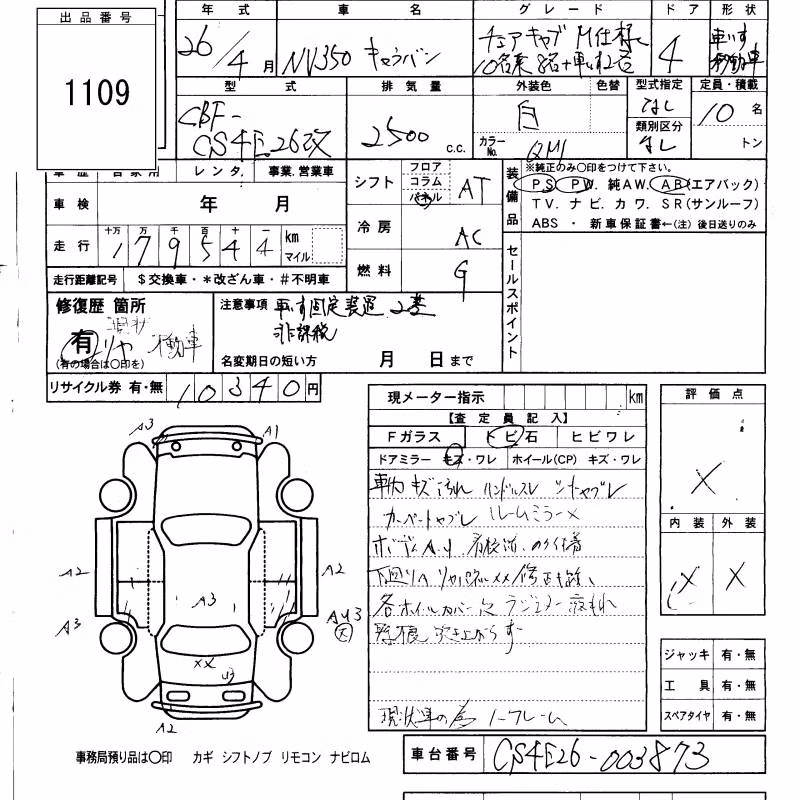 出品番号
1109
年式 車名 グレード ドア 形状
26/4月 NV350 キャラバン チェアキャブ M仕様 4 車いす
10名乗 8名+車いす2名 移動車
型式 排気量 外装色 色替 型式指定 定員・積載
CBF- 2500 c.c. 白 なし 10名
類別区分
CS4E26改 カラーNo. QM1 なし トン
車歴 自家用 レンタ. 事業.営業車
車検 年 月
十万 万 千 百 十 一
走行 179544 km マイル
走行距離記号 $交換車・*改ざん車・#不明車
シフト フロア コラム パネル AT
冷房 AC
燃料 G
装備品
※純正のみ○印をつけて下さい。
PS PW. 純AW. AB(エアバック)
TV. ナビ. カワ. SR(サンルーフ)
ABS ・ 新車保証書←(注) 後日送りのみ
セールスポイント
修復歴 箇所
有 リヤ
(有の場合は○印を)
注意事項 車いす固定装置 2基
非課税
移動車
名変期日の短い方 月 日まで
リサイクル券 有・無 10340円
現メーター指示 km
【査定員記入】
Fガラス トビ石 ヒビワレ
ドアミラー キズ・ワレ ホイール(CP) キズ・ワレ
車内キズ汚れ ハンドルスレ シートヤブレ
カーペートヤブレ ルームミラー×
下廻りA リヤパネルXX修正
各ホイルカバー欠 ラジエター液もれ
現状車の為 ノークレーム
評価点
X
内装 外装
X X
ジャッキ 有・無
工具 有・無
スペアタイヤ 有・無
A3 A1
A2 A2
A3
A3
AU3
XX
U3
A2
事務局預り品は○印 カギ シフトノブ リモコン ナビロム
車台番号 CS4E26-003873